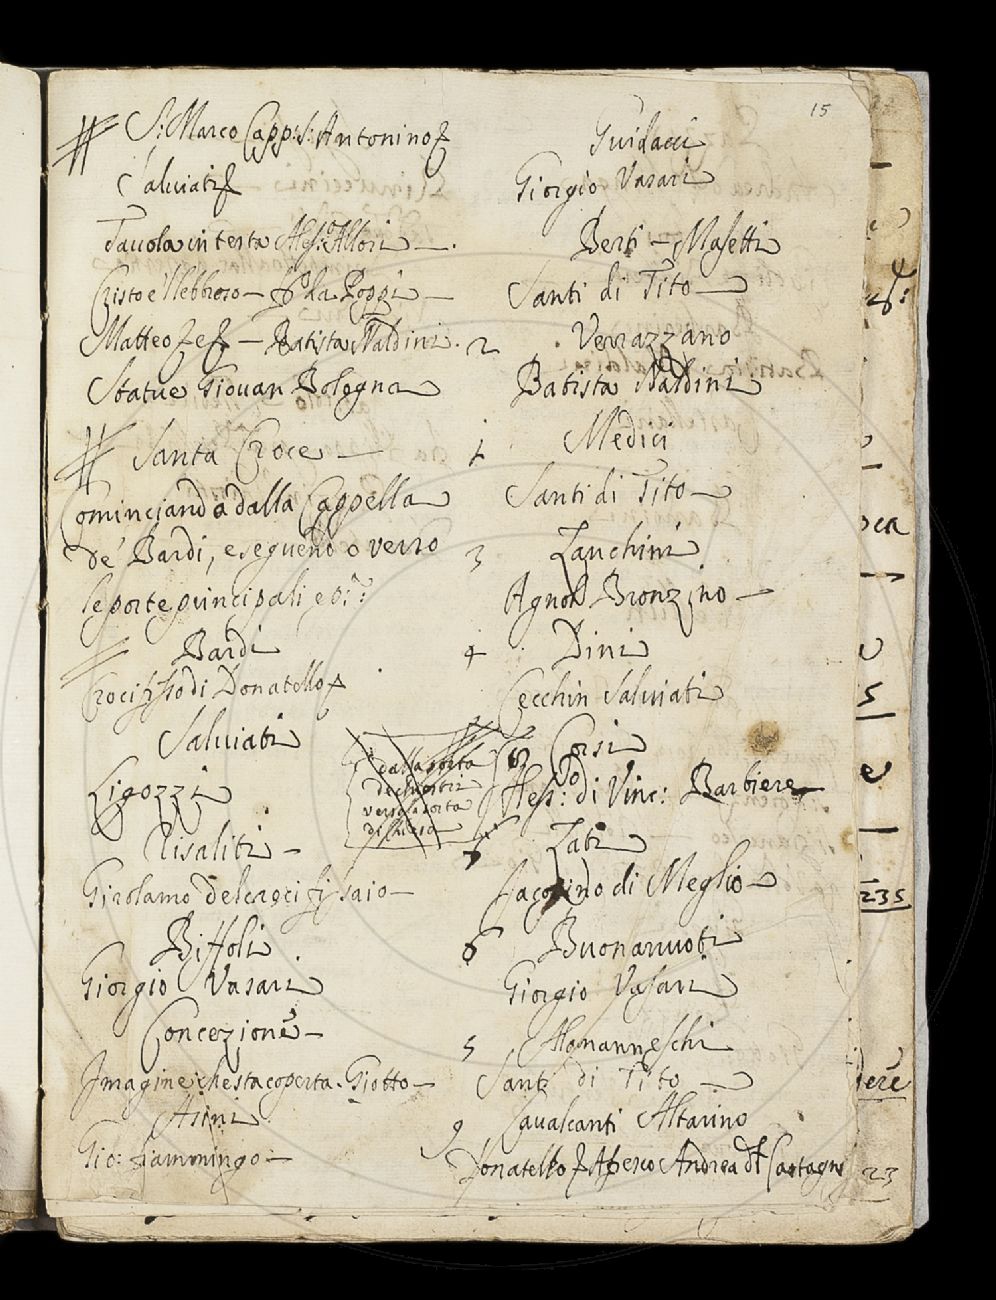 15
S: Marco Capp: S: Antonino
Salviati
Tavola in testa Aless: Allori —.
Cristo e 'l lebbroso — da Poppi —
Matteo — Batista Naldini.
Statue Giovan Bologna
Santa Croce —
Cominciando dalla Cappella
de' Bardi, e seguendo verso
le porte principali e
Bardi
Crocifisso di Donatello
Salviati
Ligozzi
Risaliti —
Girolamo del crocifissaio —
Biffoli
Giorgio Vasari
Concezione —
Imagine che sta coperta. Giotto —
Asini
Gio: fiammingo —
dalla porta
de chiostri
verso la porta
di
Guidacci
Giorgio Vasari
Berti — Masetti
Santi di Tito —
2 Verrazzano
Batista Naldini
1 Medici
Santi di Tito —
3 Zanchini
Agnol Bronzino —
4 Dini
Cecchin Salviati
Corsi
Aless: di Vinc: Barbiere
7 Zati
Jacopino di Meglio —
6 Buonarruoti
Giorgio Vasari
5 Alamanneschi
Santi di Tito —
9 Cavalcanti Altarino
Donatello Andrea del Castagno
235
23